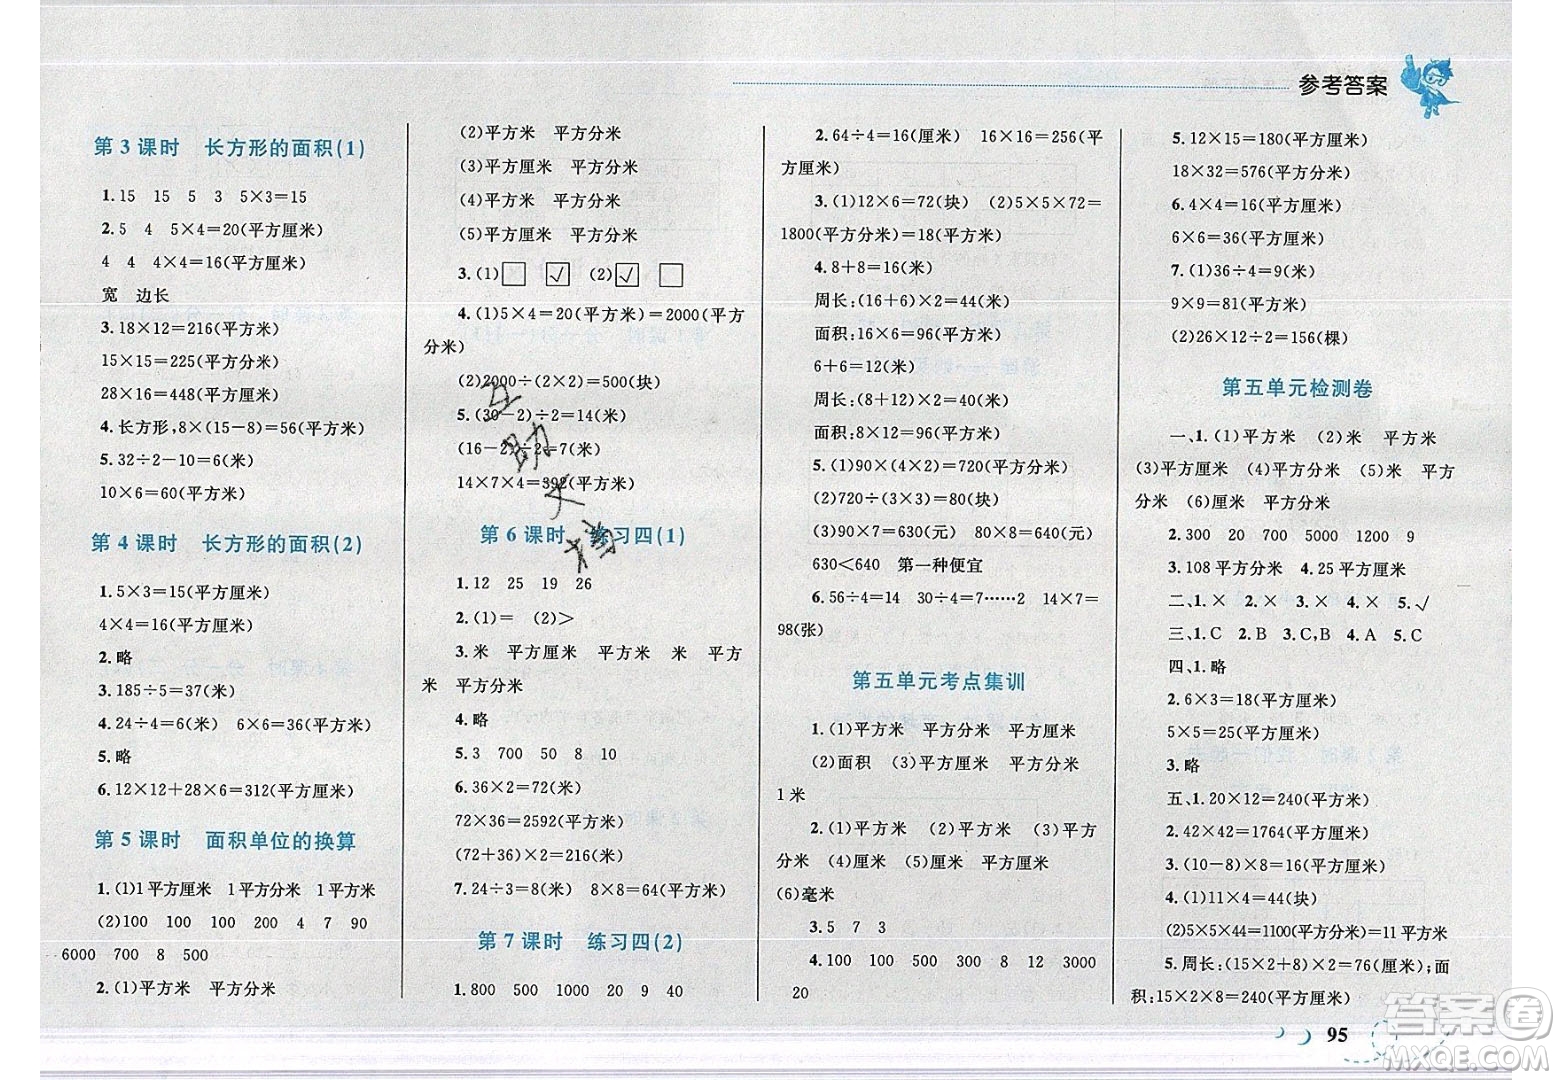 参考答案
第3课时 长方形的面积(1)
1.15 15 5 3 5×3=15
2.5 4 5×4=20(平方厘米)
4 4 4×4=16(平方厘米)
宽 边长
3.18×12=216(平方米)
15×15=225(平方分米)
28×16=448(平方厘米)
4.长方形,8×(15-8)=56(平方米)
5.32÷2-10=6(分米)
10×6=60(平方分米)
第4课时 长方形的面积(2)
1.5×3=15(平方厘米)
4×4=16(平方厘米)
2.略
3.185÷5=37(分米)
4.24÷4=6(米) 6×6=36(平方米)
5.略
6.12×12+28×6=312(平方厘米)
第5课时 面积单位的换算
1.(1)1平方厘米 1平方分米 1平方米
(2)100 100 100 200 4 7 90
6000 700 8 500
2.(1)平方米 平方分米
(2)平方米 平方分米
(3)平方厘米 平方分米
(4)平方米 平方分米
(5)平方厘米 平方分米
3.(1)□ ☑ (2)☑ □
4.(1)5×4=20(平方米)=2000(平方
分米)
(2)2000÷(2×2)=500(块)
5.(30-2)÷2=14(米)
(16-2)÷2=7(米)
14×7×4=392(平方米)
第6课时 练习四(1)
1.12 25 19 26
2.(1)= (2)>
3.米 平方厘米 平方米 米 平方
米 平方分米
4.略
5.3 700 50 8 10
6.36×2=72(米)
72×36=2592(平方米)
(72+36)×2=216(米)
7.24÷3=8(米) 8×8=64(平方米)
第7课时 练习四(2)
1.800 500 1000 20 9 40
2.64÷4=16(厘米) 16×16=256(平
方厘米)
3.(1)12×6=72(块) (2)5×5×72=
1800(平方分米)=18(平方米)
4.8+8=16(米)
周长:(16+6)×2=44(米)
面积:16×6=96(平方米)
6+6=12(米)
周长:(8+12)×2=40(米)
面积:8×12=96(平方米)
5.(1)90×(4×2)=720(平方分米)
(2)720÷(3×3)=80(块)
(3)90×7=630(元) 80×8=640(元)
630<640 第一种便宜
6.56÷4=14 30÷4=7……2 14×7=
98(张)
第五单元考点集训
1.(1)平方米 平方分米 平方厘米
(2)面积 (3)平方厘米 平方分米
1米
2.(1)平方米 (2)平方米 (3)平方
分米 (4)厘米 (5)厘米 平方厘米
(6)毫米
3.5 7 3
4.100 100 500 300 8 12 3000
20
5.12×15=180(平方米)
18×32=576(平方分米)
6.4×4=16(平方厘米)
6×6=36(平方厘米)
7.(1)36÷4=9(米)
9×9=81(平方米)
(2)26×12÷2=156(棵)
第五单元检测卷
一、1.(1)平方米 (2)米 平方米
(3)平方厘米 (4)平方分米 (5)米 平方
分米 (6)厘米 平方分米
2.300 20 700 5000 1200 9
3.108平方分米 4.25平方厘米
二、1.× 2.× 3.× 4.× 5.√
三、1.C 2.B 3.C,B 4.A 5.C
四、1.略
2.6×3=18(平方厘米)
5×5=25(平方厘米)
3.略
五、1.20×12=240(平方米)
2.42×42=1764(平方厘米)
3.(10-8)×8=16(平方厘米)
4.(1)11×4=44(块)
(2)5×5×44=1100(平方分米)=11平方米
5.周长:(15×2+8)×2=76(厘米);面
积:15×2×8=240(平方厘米)
95
答案卷
MXQE.COM